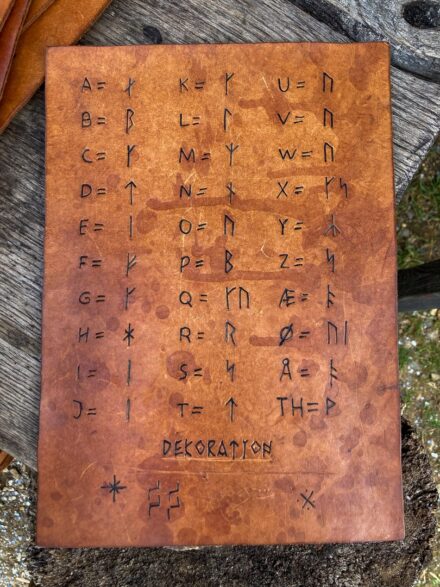 A= ᛅ K= ᚴ U= ᚢ
B= ᛒ L= ᛚ V= ᚢ
C= ᚴ M= ᛘ W= ᚢ
D= ᛏ N= ᚾ X= ᚴᛋ
E= ᛁ O= ᚢ Y= ᛦ
F= ᚠ P= ᛒ Z= ᛋ
G= ᚴ Q= ᚴᚢ Æ= ᚬ
H= ᚼ R= ᚱ Ø= ᚢᛁ
I= ᛁ S= ᛋ Å= ᚬ
J= ᛁ T= ᛏ TH= ᚦ
DEKORATION